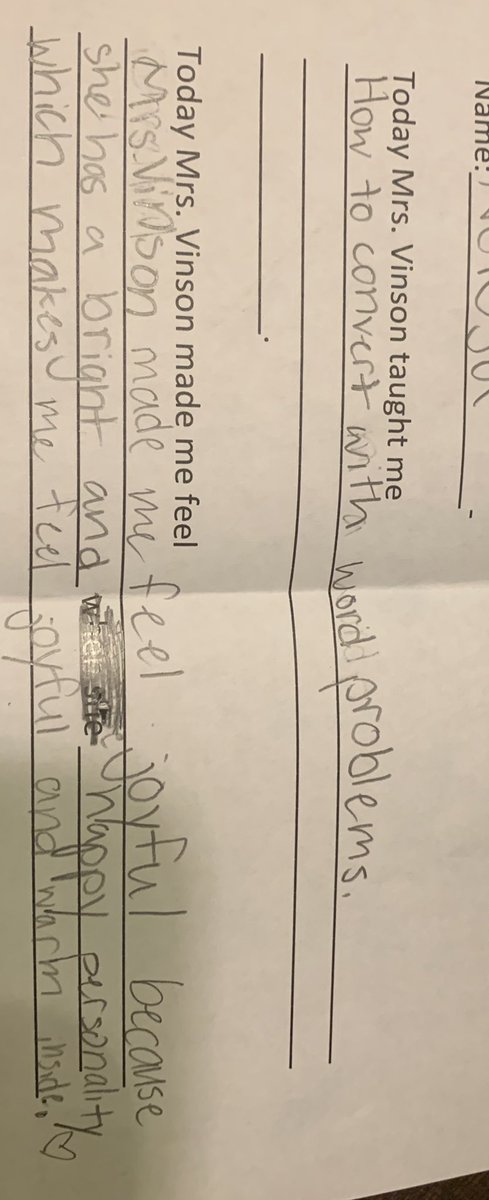 Name:
Today Mrs. Vinson taught me
How to convert with word problems.
Today Mrs. Vinson made me feel
Mrs.Vinson made me feel joyful because
she has a bright and happy personality
which makes me feel joyful and warm inside.